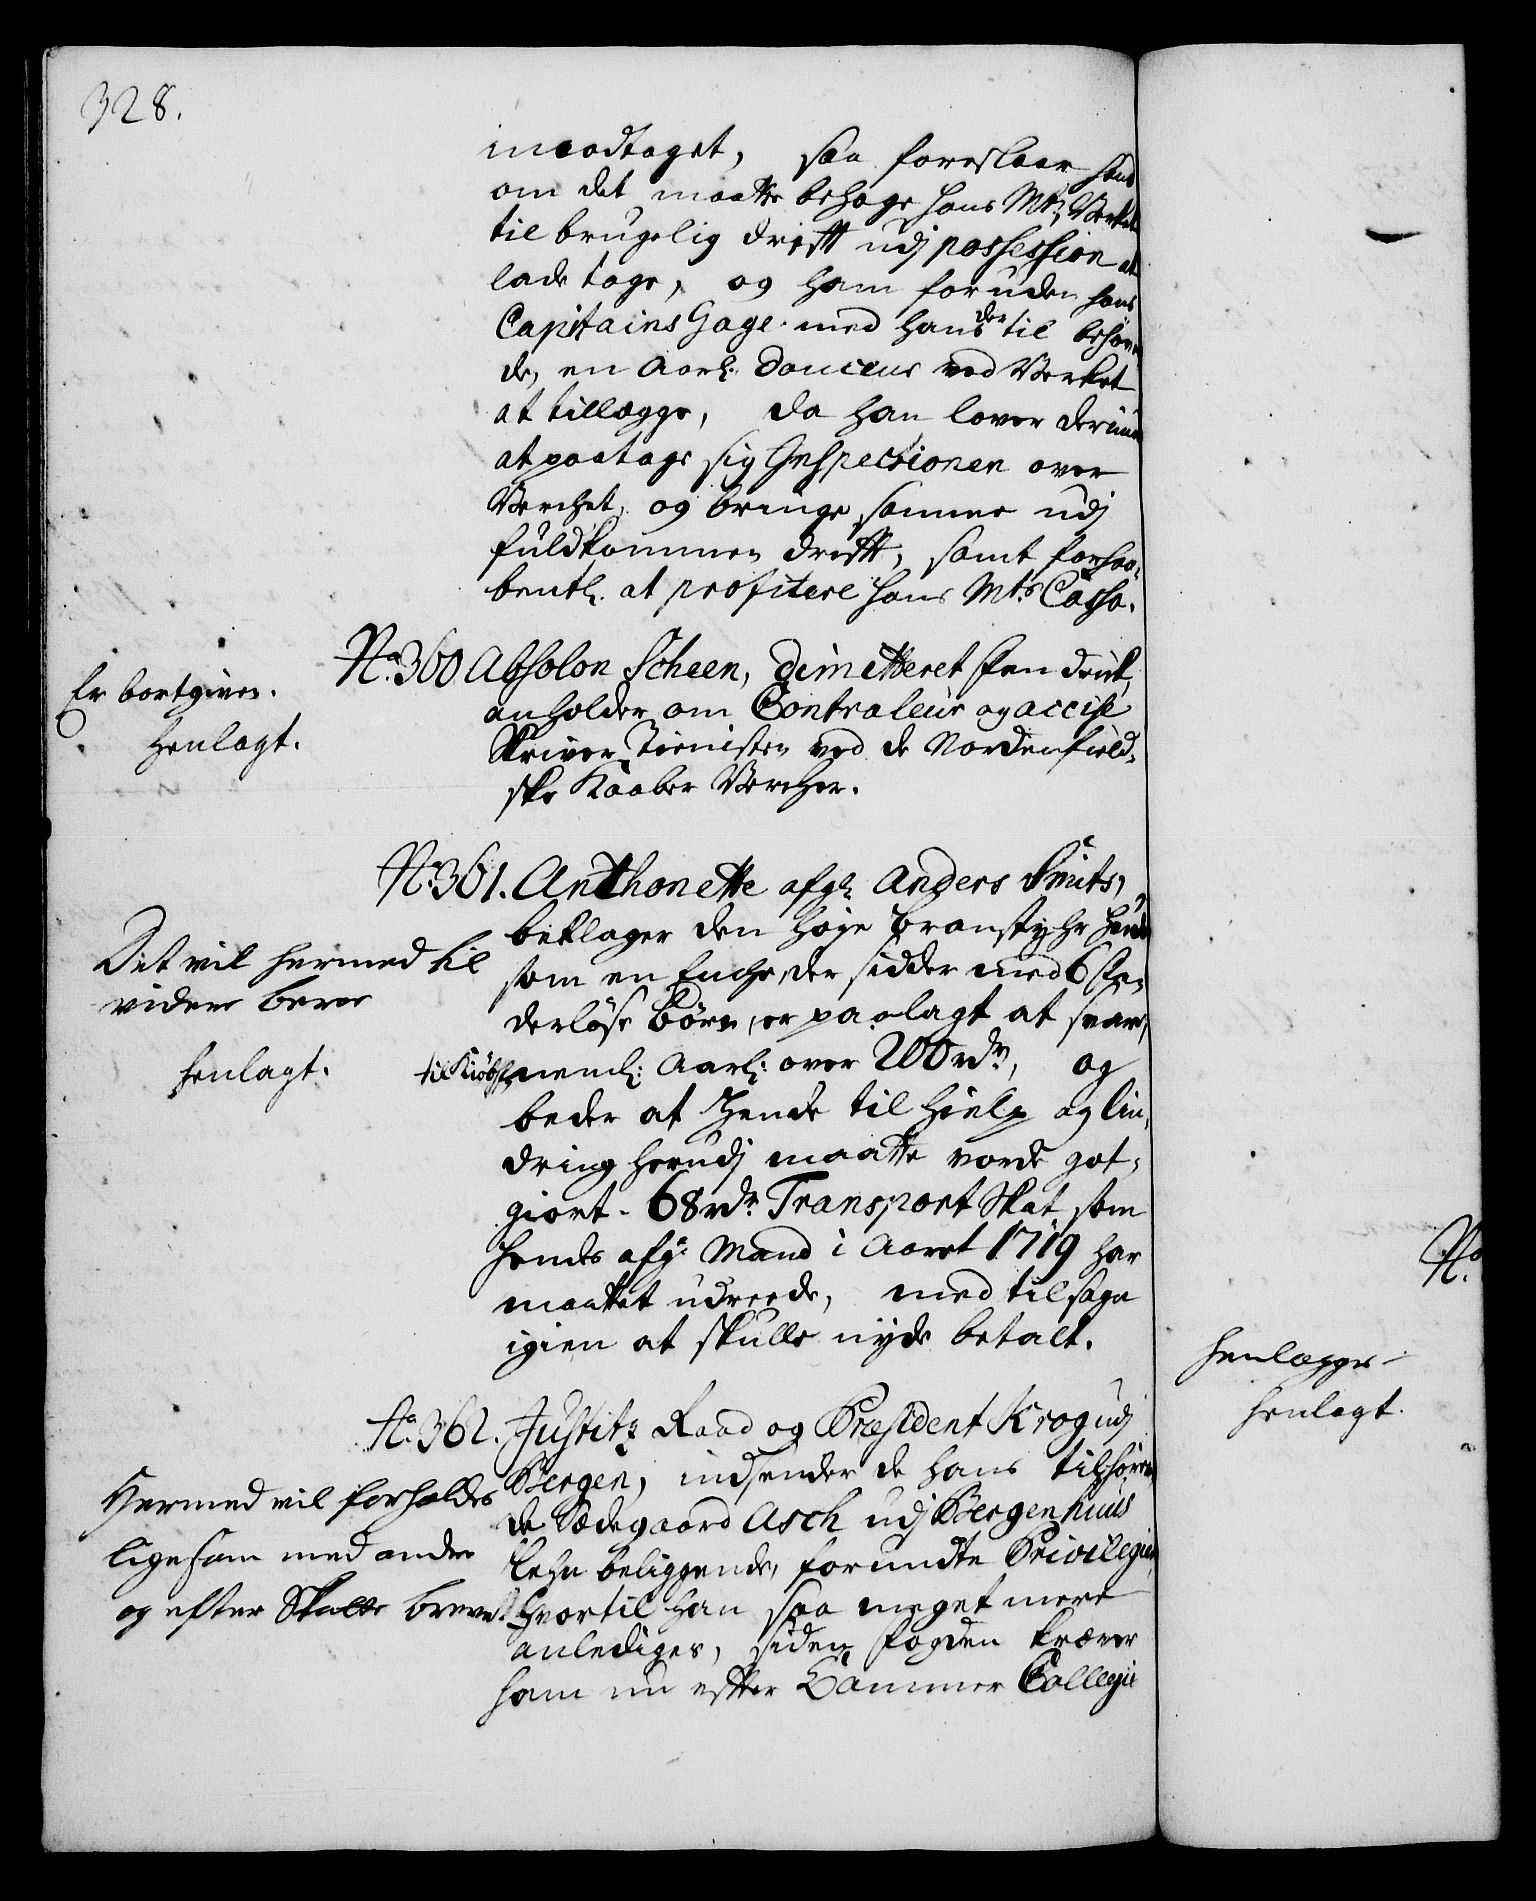 328.
imodtaget, saa foreslaar hand
om det maatte behage hans Mt: Verket
til brugelig drifft udj possession at
lade tage, og ham foruden hans
Capitains Gage med hans der til behøren
de, en Aarl: Douceur ved Verket
at tillægge, da han lover derimod
at paatage sig Inspectionen over
Verchet, og bringe samme udj
fuldkommen drifft, samt forhaa-
bentl: at profitere hans Mts Cassa.
No 360 Absolon Scheen, dimitteret student,
anholder om Contraleur og accise
Skriver Tienisten ved de Nordenfield-
ske Kaaber Vercher.
Er bortgiven.
Henlagt.
No 361. Anthonette afgl: Anders Smits,
beklager den høye Brandstyhr hende
som en Enche, der sidder med 6 fa-
derløse Børn, er paalagt at svare,
nemlig: Aarl: over 200 rdr, og
beder at Hende til hielp og lin-
dring herudj maatte vorde got-
giort 68 rdr Transport Skat som
hendes afg: Mand i Aaret 1719 har
maattet udreede, med tilsagn
igien at skulle nyde betalt.
Det vil hermed til
videre beroe
henlagt.
No 362. Justitz Raad og Præsident Krog udj
Bergen, indsender de hans tilhøren
de Sædegaard Asch udj Bergenhuus
Lehn beliggende, forundte Privilegier
hvortil han saa meget mere
anlediges, siden fogden kræver
ham nu effter Cammer Collegii
Hermed vil forholdes
ligesom med andre
og efter Skatte brevet
No
henlægges
henlagt.